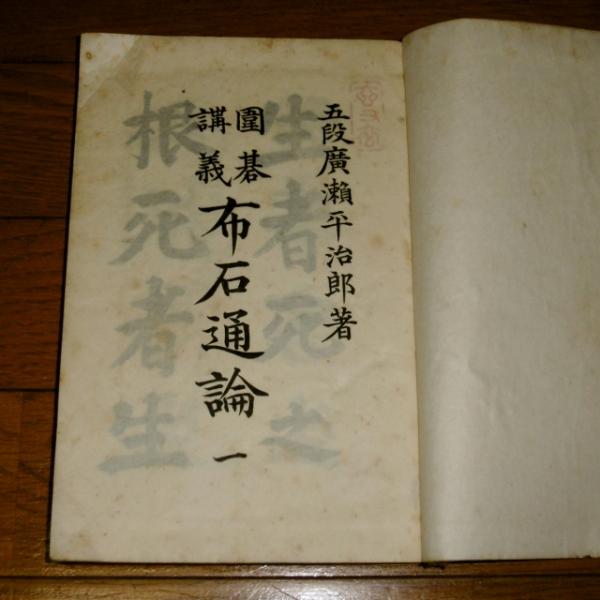 五段廣瀨平治郎著
圍碁
講義
布石通論 一
生者死之
根死者生